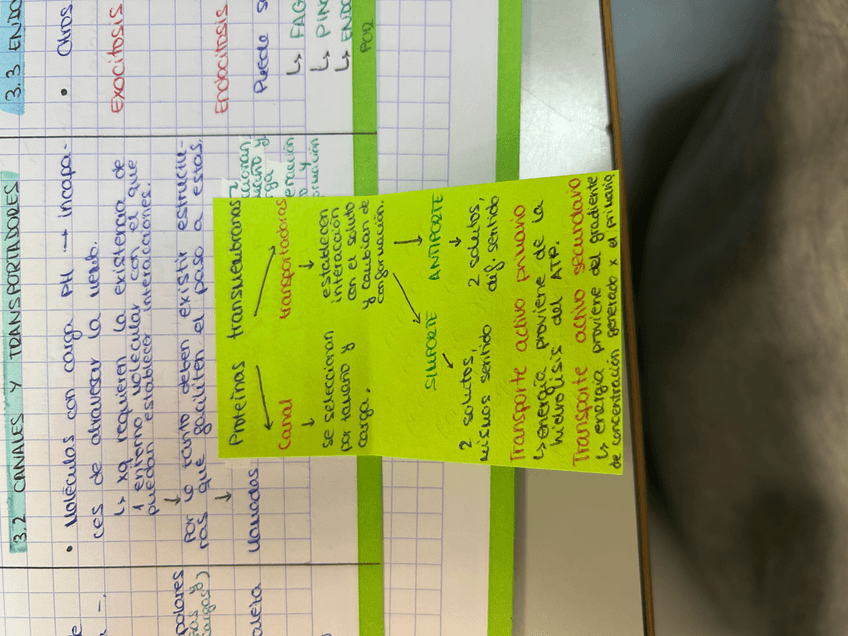 3.2 CANALES Y TRANSPORTADORES
• Moléculas con carga PH → incapa-
ces de atravesar la memb.
↳ xq requieren la existencia de
1 entorno molecular con el que
puedan establecer interacciones.
↓
Por lo tanto deben existir estructu-
ras que faciliten el paso a estas.
↓
llamadas
Proteínas transmembranas
Canal transportadoras
↓ ↓
se seleccionan
por tamaño y
carga.
establecen
interacción
con el soluto
y cambian de
conformación.
SIMPORTE ANTIPORTE
2 solutos,
mismos sentido
2 solutos,
dif. sentido
Transporte activo primario
↳ energía proviene de la
hidrólisis del ATP.
Transporte activo secundario
↳ energía proviene del gradiente
de concentración generado x el primario
3.3 ENDO
• Otros
Exocitosis
Endocitosis
Puede s
↳ FAG
↳ PIN
↳ ENDO
POR
polares